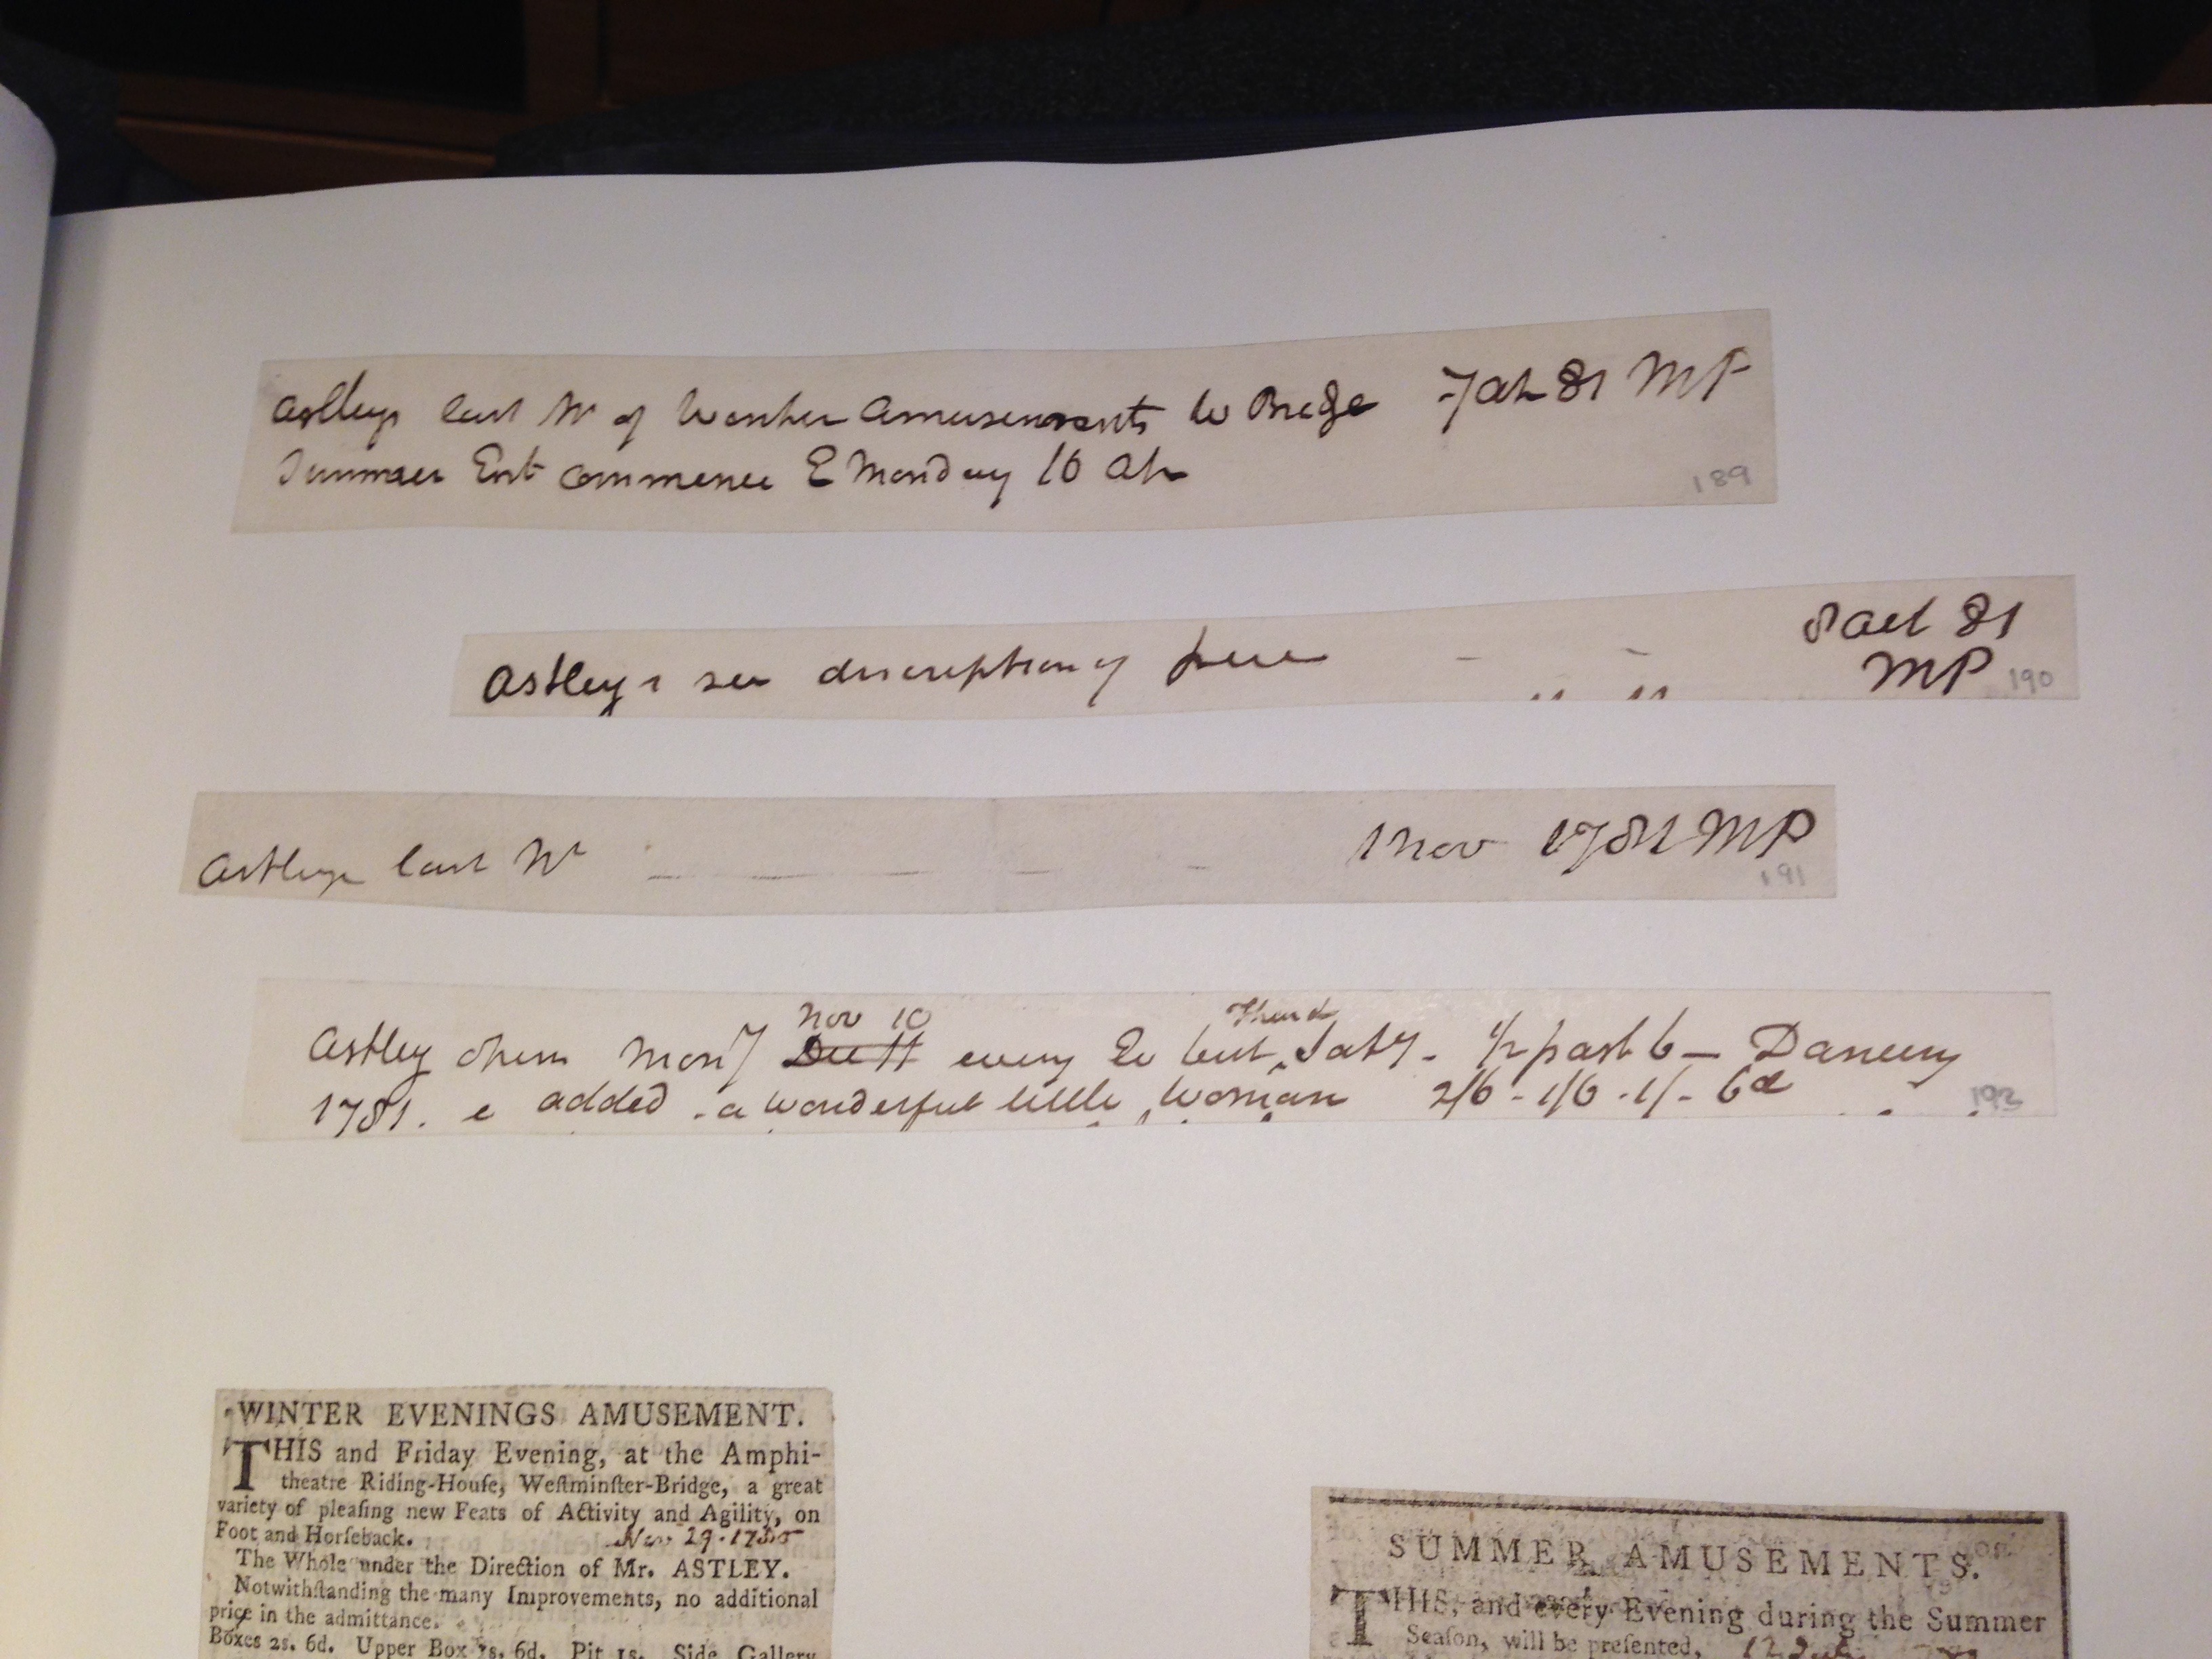 Astleys last Nt of Winter Amusements W Bridge 7 Ap 81 MP
Summer Ent commence E Monday 16 Ap
189
Astleys see description of
8 Oct 81
MP 190
Astleys last Nt — — — — — 1 Nov 1781 MP
191
Nov 10 Thurs &
Astley opens Mony Dec 11 every Ev but Saty - 1/2 past 6 — Dancing
1781. & added - a wonderful little Woman 2/6 - 1/6 - 1/- 6d
WINTER EVENINGS AMUSEMENT.
THIS and Friday Evening, at the Amphi-
theatre Riding-Houſe, Weſtminſter-Bridge, a great
variety of pleaſing new Feats of Activity and Agility, on
Foot and Horſeback. Nov 29 . 1780
The Whole under the Direction of Mr. ASTLEY.
Notwithſtanding the many Improvements, no additional
price in the admittance.
Boxes 2s. 6d. Upper Box 1s. 6d. Pit 1s. Side Gallery
SUMMER AMUSEMENTS.
THIS, and every Evening during the Summer
Seaſon, will be preſented, 12 July